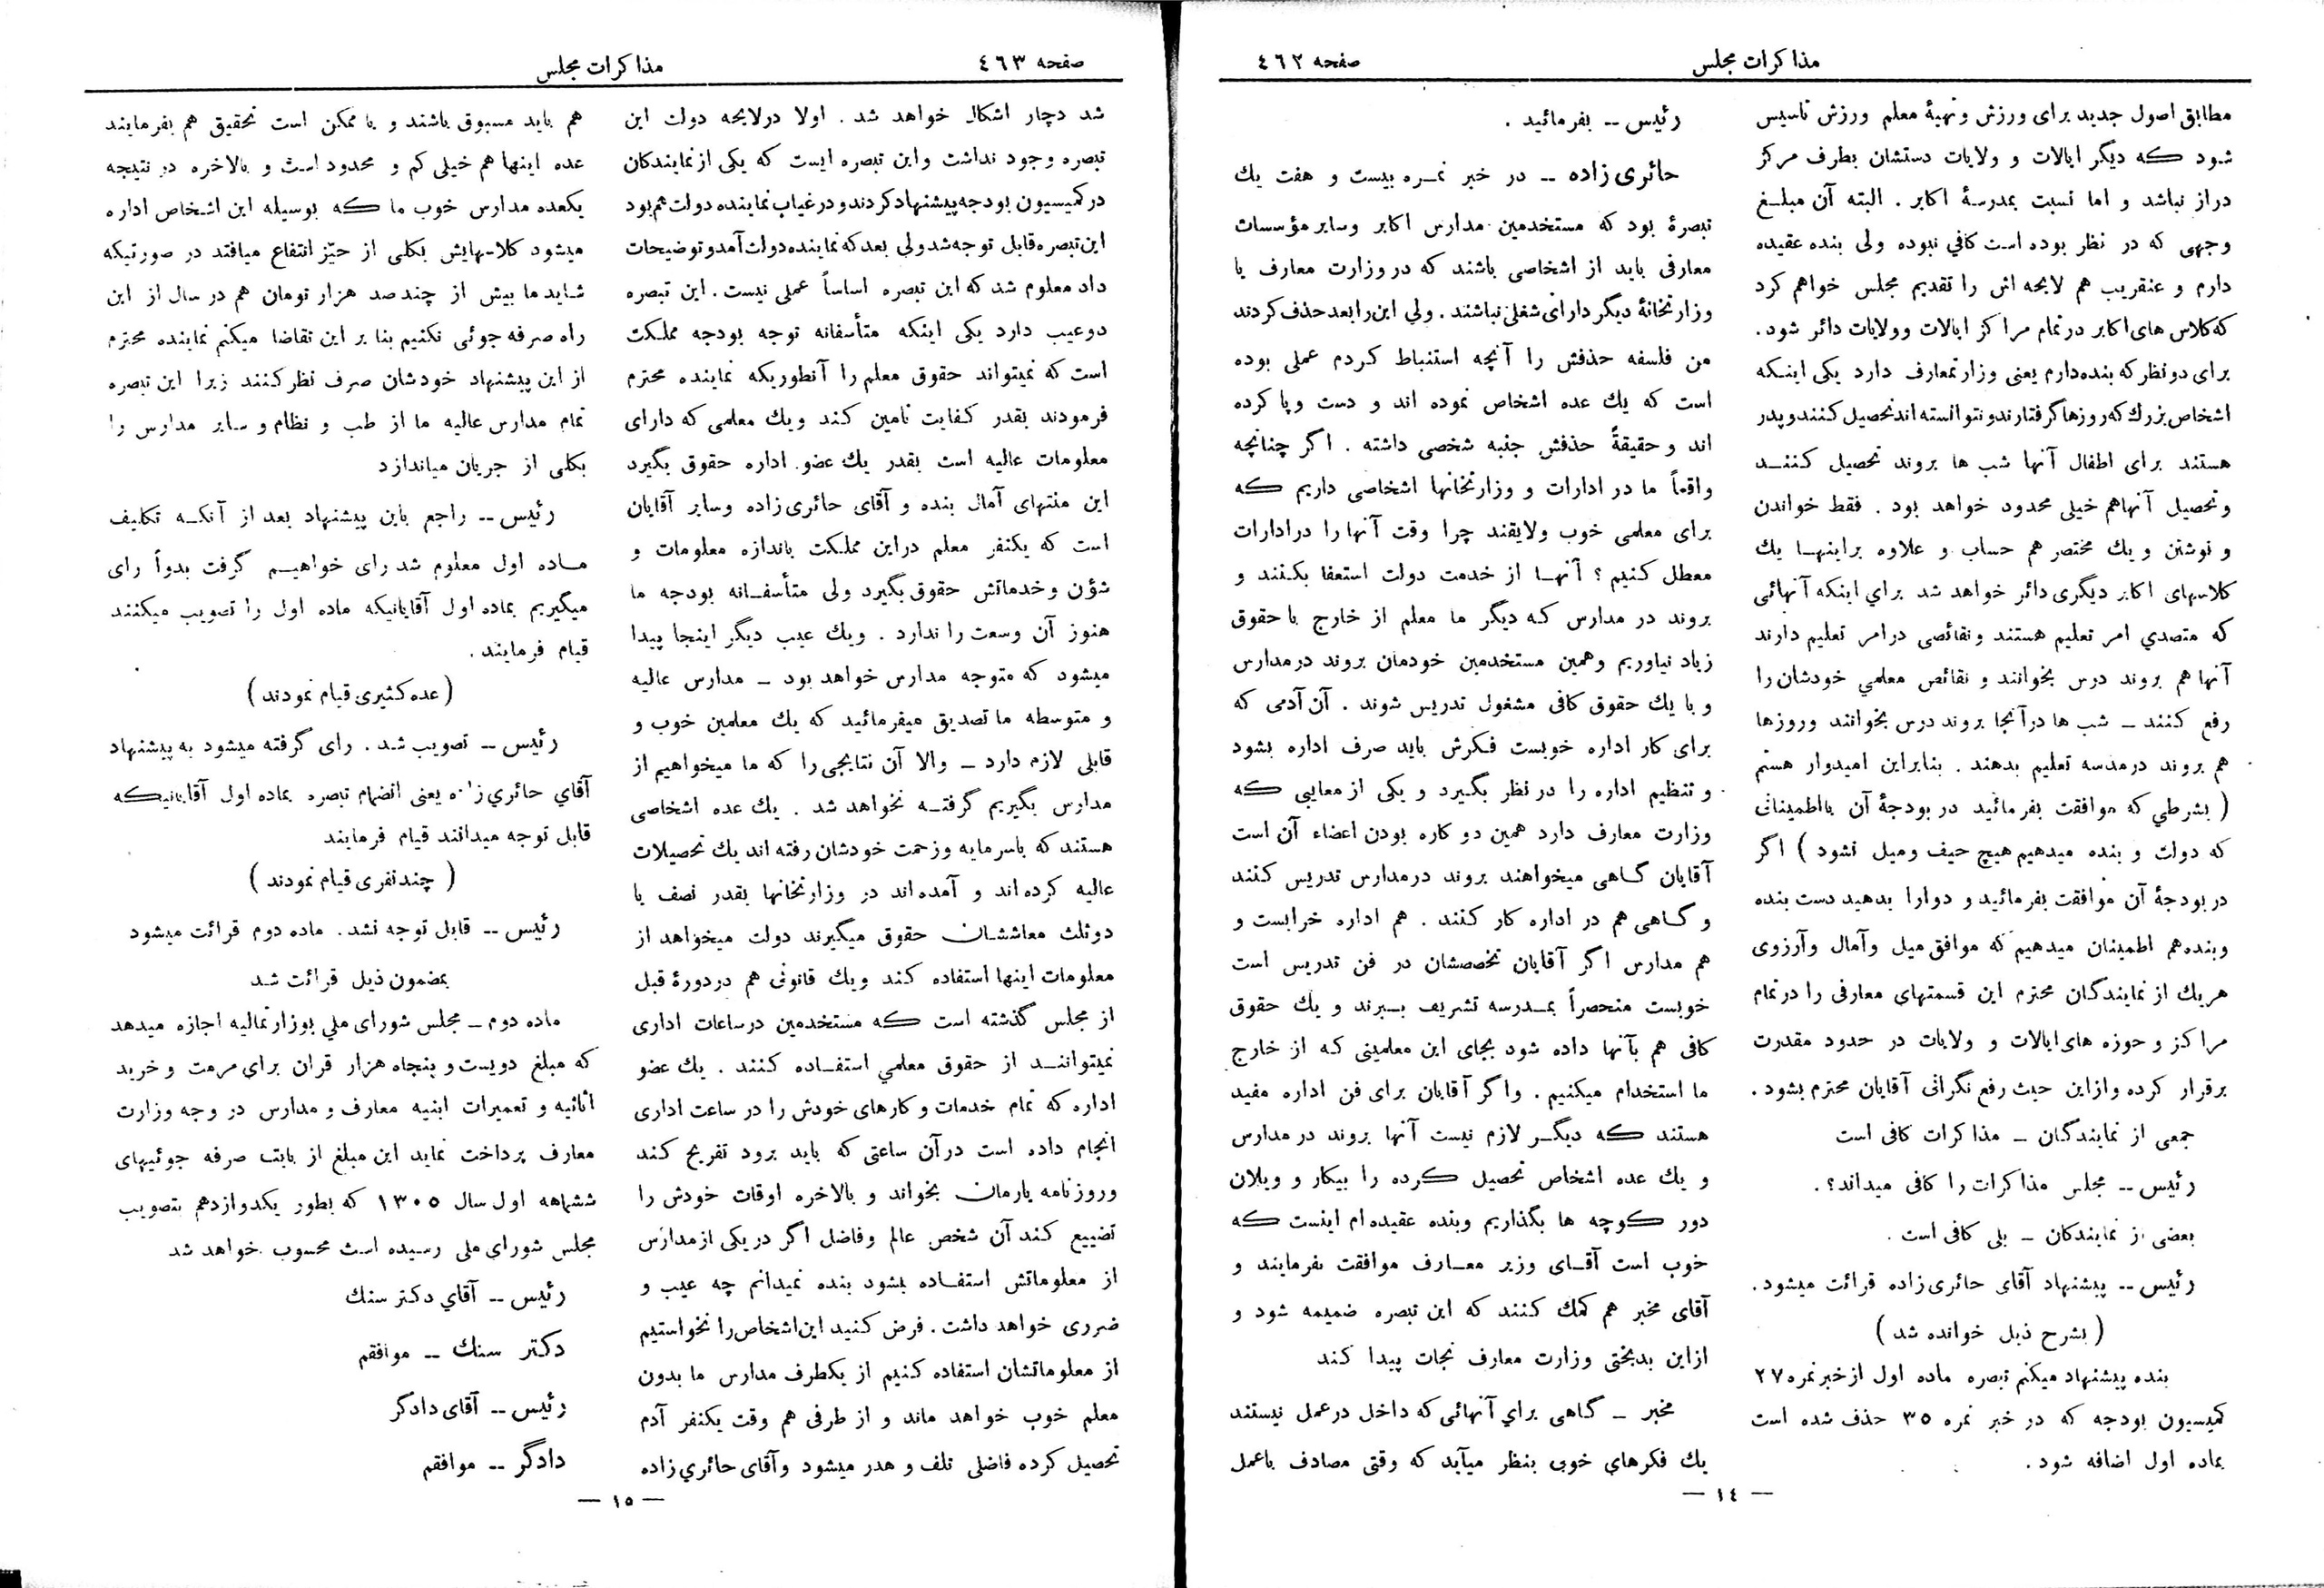 صفحه ٤٦٢
مذاکرات مجلس
مطابق اصول جدید برای ورزش و تهیهٔ معلم ورزش تأسیس
شود که دیگر ایالات و ولایات دستشان بطرف مرکز
دراز نباشد و اما نسبت بمدرسهٔ اکابر . البته آن مبلغ
وجهی که در نظر بوده است کافي نبوده ولی بنده عقیده
دارم و عنقریب هم لایحه اش را تقدیم مجلس خواهم کرد
که کلاس های اکابر در تمام مراکز ایالات و ولایات دائر شود.
برای دو نظر که بنده دارم یعنی وزارتمعارف دارد یکی اینکه
اشخاص بزرك که روزها گرفتارند و نتوانسته اند تحصیل کنند و پدر
هستند برای اطفال آنها شب ها بروند تحصیل کنند
و تحصیل آنها هم خیلی محدود خواهد بود . فقط خواندن
و نوشتن و یك مختصر هم حساب و علاوه بر اینها یك
کلاسهای اکابر دیگری دائر خواهد شد براي اینکه آنهائی
که متصدي امر تعلیم هستند و نقائصی در امر تعلیم دارند
آنها هم بروند درس بخوانند و نقائص معلمي خودشان را
رفع کنند ـ شب ها در آنجا بروند درس بخوانند و روزها
هم بروند در مدسه تعلیم بدهند . بنابراین امیدوار هستم
( بشرطي که موافقت بفرمائید در بودجهٔ آن با اطمینانی
که دولت و بنده میدهیم هیچ حیف و میل نشود ) اگر
در بودجهٔ آن موافقت بفرمائید و دوارا بدهید دست بنده
و بنده هم اطمینان میدهیم که موافق میل و آمال و آرزوی
هریك از نمایندگان محترم این قسمتهای معارفی را در تمام
مراکز و حوزه های ایالات و ولایات در حدود مقدرت
برقرار کرده و از این حیث رفع نگرانی آقایان محترم بشود .
جمعی از نمایندگان ـ مذاکرات کافی است
رئیس -- مجلس مذاکرات را کافی میداند؟ .
بعضی از نمایندکان ـ بلی کافی است .
رئیس -- پیشنهاد آقای حائری زاده قرائت میشود .
( بشرح ذیل خوانده شد )
بنده پیشنهاد میکنم تبصره ماده اول از خبر نمره ٢٧
کمیسیون بودجه که در خبر نمره ٣٥ حذف شده است
بماده اول اضافه شود .
رئیس -- بفرمائید .
حائری زاده -- در خبر نمره بیست و هفت یك
تبصرهٔ بود که مستخدمین مدارس اکابر و سایر مؤسسات
معارفی باید از اشخاصی باشند که در وزارت معارف یا
وزارتخانهٔ دیگر دارای شغلی نباشند . ولي این را بعد حذف کردند
من فلسفه حذفش را آنچه استنباط کردم عملی بوده
است که یك عده اشخاص نموده اند و دست و پا کرده
اند و حقیقةً حذفش جنبه شخصی داشته . اگر چنانچه
واقعاً ما در ادارات و وزارتخانها اشخاصی داریم که
برای معلمی خوب و لایقند چرا وقت آنها را در ادارات
معطل کنیم ؟ آنها از خدمت دولت استعفا بکنند و
بروند در مدارس که دیگر ما معلم از خارج با حقوق
زیاد نیاوریم و همین مستخدمین خودمان بروند در مدارس
و با یك حقوق کافی مشغول تدریس شوند . آن آدمی که
برای کار اداره خوبست فکرش باید صرف اداره بشود
و تنظیم اداره را در نظر بگیرد و یکی از معایبی که
وزارت معارف دارد همین دو کاره بودن اعضاء آن است
آقایان گاهی میخواهند بروند در مدارس تدریس کنند
و گاهی هم در اداره کار کنند . هم اداره خرابست و
هم مدارس اگر آقایان تخصصشان در فن تدریس است
خوبست منحصراً بمدرسه تشریف ببرند و یك حقوق
کافی هم بآنها داده شود بجای این معلمینی که از خارج
ما استخدام میکنیم . و اگر آقایان برای فن اداره مفید
هستند که دیگر لازم نیست آنها بروند در مدارس
و یك عده اشخاص تحصیل کرده را بیکار و ویلان
دور کوچه ها بگذاریم و بنده عقیده ام اینست که
خوب است آقای وزیر معارف موافقت بفرمایند و
آقای مخبر هم کمك کنند که این تبصره ضمیمه شود و
از این بدبختی وزارت معارف نجات پیدا کند
مخبر ـ گاهی براي آنهائی که داخل در عمل نیستند
یك فکرهاي خوبی بنظر میآید که وقتی مصادف با عمل
— ١٤ —
صفحه ٤٦٣
مذاکرات مجلس
شد دچار اشکال خواهد شد . اولا در لایحه دولت این
تبصره وجود نداشت و این تبصره ایست که یکی از نمایندکان
در کمیسیون بودجه پیشنهاد کردند و در غیاب نماینده دولت هم بود
این تبصره قابل توجه شد ولی بعد که نماینده دولت آمد و توضیحات
داد معلوم شد که این تبصره اساساً عملی نیست . این تبصره
دو عیب دارد یکی اینکه متأسفانه توجه بودجه مملکت
است که نمیتواند حقوق معلم را آنطوریکه نماینده محترم
فرمودند بقدر کفایت تامین کند و یك معلمی که دارای
معلومات عالیه است بقدر یك عضو اداره حقوق بگیرد
این منتهای آمال بنده و آقای حائری زاده و سایر آقایان
است که یکنفر معلم در این مملکت باندازه معلومات و
شؤن و خدماتش حقوق بگیرد ولی متأسفانه بودجه ما
هنوز آن وسعت را ندارد . و یك عیب دیگر اینجا پیدا
میشود که متوجه مدارس خواهد بود ـ مدارس عالیه
و متوسطه ما تصدیق میفرمائید که یك معلمین خوب و
قابلی لازم دارد ـ والا آن نتایجی را که ما میخواهیم از
مدارس بگیریم گرفته نخواهد شد . یك عده اشخاصی
هستند که با سرمایه و زحمت خودشان رفته اند یك تحصیلات
عالیه کرده اند و آمده اند در وزارتخانها بقدر نصف یا
دو ثلث معاششان حقوق میگیرند دولت میخواهد از
معلومات اینها استفاده کند و یك قانونی هم در دورهٔ قبل
از مجلس گذشته است که مستخدمین در ساعات اداری
نمیتوانند از حقوق معلمي استفاده کنند . یك عضو
اداره که تمام خدمات و کارهای خودش را در ساعت اداری
انجام داده است در آن ساعتی که باید برود تفریح کند
و روزنامه یا رمان بخواند و بالاخره اوقات خودش را
تضییع کند آن شخص عالم و فاضل اگر در یکی از مدارس
از معلوماتش استفاده بشود بنده نمیدانم چه عیب و
ضرری خواهد داشت . فرض کنید این اشخاص را نخواستیم
از معلوماتشان استفاده کنیم از یکطرف مدارس ما بدون
معلم خوب خواهد ماند و از طرفی هم وقت یکنفر آدم
تحصیل کرده فاضلی تلف و هدر میشود و آقای حائري زاده
هم باید مسبوق باشند و یا ممکن است تحقیق هم بفرمایند
عده اینها هم خیلی کم و محدود است و بالاخره در نتیجه
یکعده مدارس خوب ما که بوسیله این اشخاص اداره
میشود کلاسهایش بکلی از حیّز انتفاع میافتد در صورتیکه
شاید ما بیش از چند صد هزار تومان هم در سال از این
راه صرفه جوئی نکنیم بنا بر این تقاضا میکنم نماینده محترم
از این پیشنهاد خودشان صرف نظر کنند زیرا این تبصره
تمام مدارس عالیه ما از طب و نظام و سایر مدارس را
بکلی از جریان میاندازد
رئیس -- راجع باین پیشنهاد بعد از آنکه تکلیف
ماده اول معلوم شد رای خواهیم گرفت بدواً رای
میگیریم بماده اول آقایانیکه ماده اول را تصویب میکنند
قیام فرمایند .
( عده کثیری قیام نمودند )
رئیس -- تصویب شد . رای گرفته میشود به پیشنهاد
آقاي حائري زاده یعنی انضمام تبصره بماده اول آقایانیکه
قابل توجه میدانند قیام فرمایند
( چند نفری قیام نمودند )
رئیس -- قابل توجه نشد . ماده دوم قرائت میشود
بمضمون ذیل قرائت شد
ماده دوم ـ مجلس شورای ملي بوزارتمالیه اجازه میدهد
که مبلغ دویست و پنجاه هزار قران برای مرمت و خرید
اثاثیه و تعمیرات ابنیه معارف و مدارس در وجه وزارت
معارف پرداخت نماید این مبلغ از بابت صرفه جوئیهای
ششماهه اول سال ١٣٠٥ که بطور یکدوازدهم بتصویب
مجلس شورای ملی رسیده است محسوب خواهد شد
رئیس -- آقاي دکتر سنك
دکتر سنك -- موافقم
رئیس -- آقای دادگر
دادگر -- موافقم
— ١٥ —